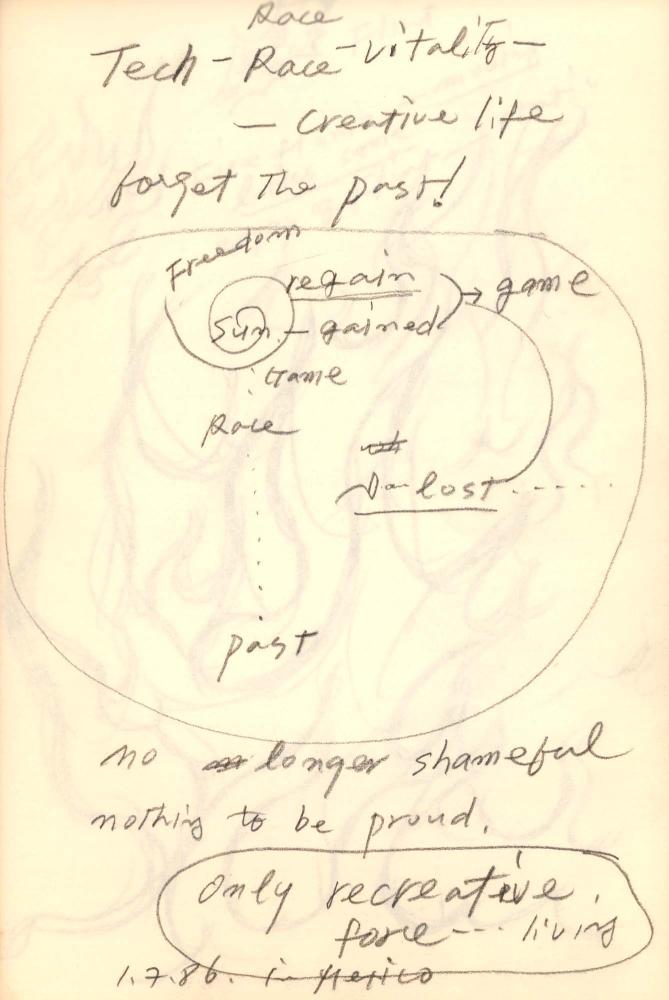 Race
Tech - Race - vitality -
- Creative life
forget the past!
Freedom
regain
Sun - gained → game
Game
Race
lost......
past
no longer shameful
nothing to be proud.
Only recreative.
force --- living
1.7.86. in Mexico